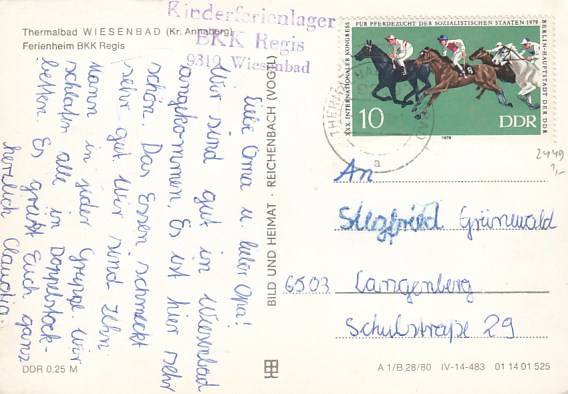 Thermalbad WIESENBAD (Kr. Annaberg)
Ferienheim BKK Regis
Kinderferienlager
BKK Regis
9312 Wiesenbad
Liebe Oma u. lieber Opa!
Wir sind gut in Wiesenbad
angekommen. Es ist hier sehr
schön. Das Essen schmeckt
sehr gut. Wir sind zehn
Mann in jeder Gruppe. Wir
schlafen alle in Doppelstock-
betten. Es grüßt Euch ganz
herzlich Claudia.
DDR 0,25 M
BILD UND HEIMAT · REICHENBACH (VOGTL)
XXX. INTERNATIONALER KONGRESS
FÜR PFERDEZUCHT DER SOZIALISTISCHEN STAATEN 1979
BERLIN-HAUPTSTADT DER DDR
10
DDR
1979
a
2449
1,-
An
Siegfried Grünewald
6503 Langenberg
Schulstraße 29
A 1/B 28/80 IV-14-483 01 14 01 525